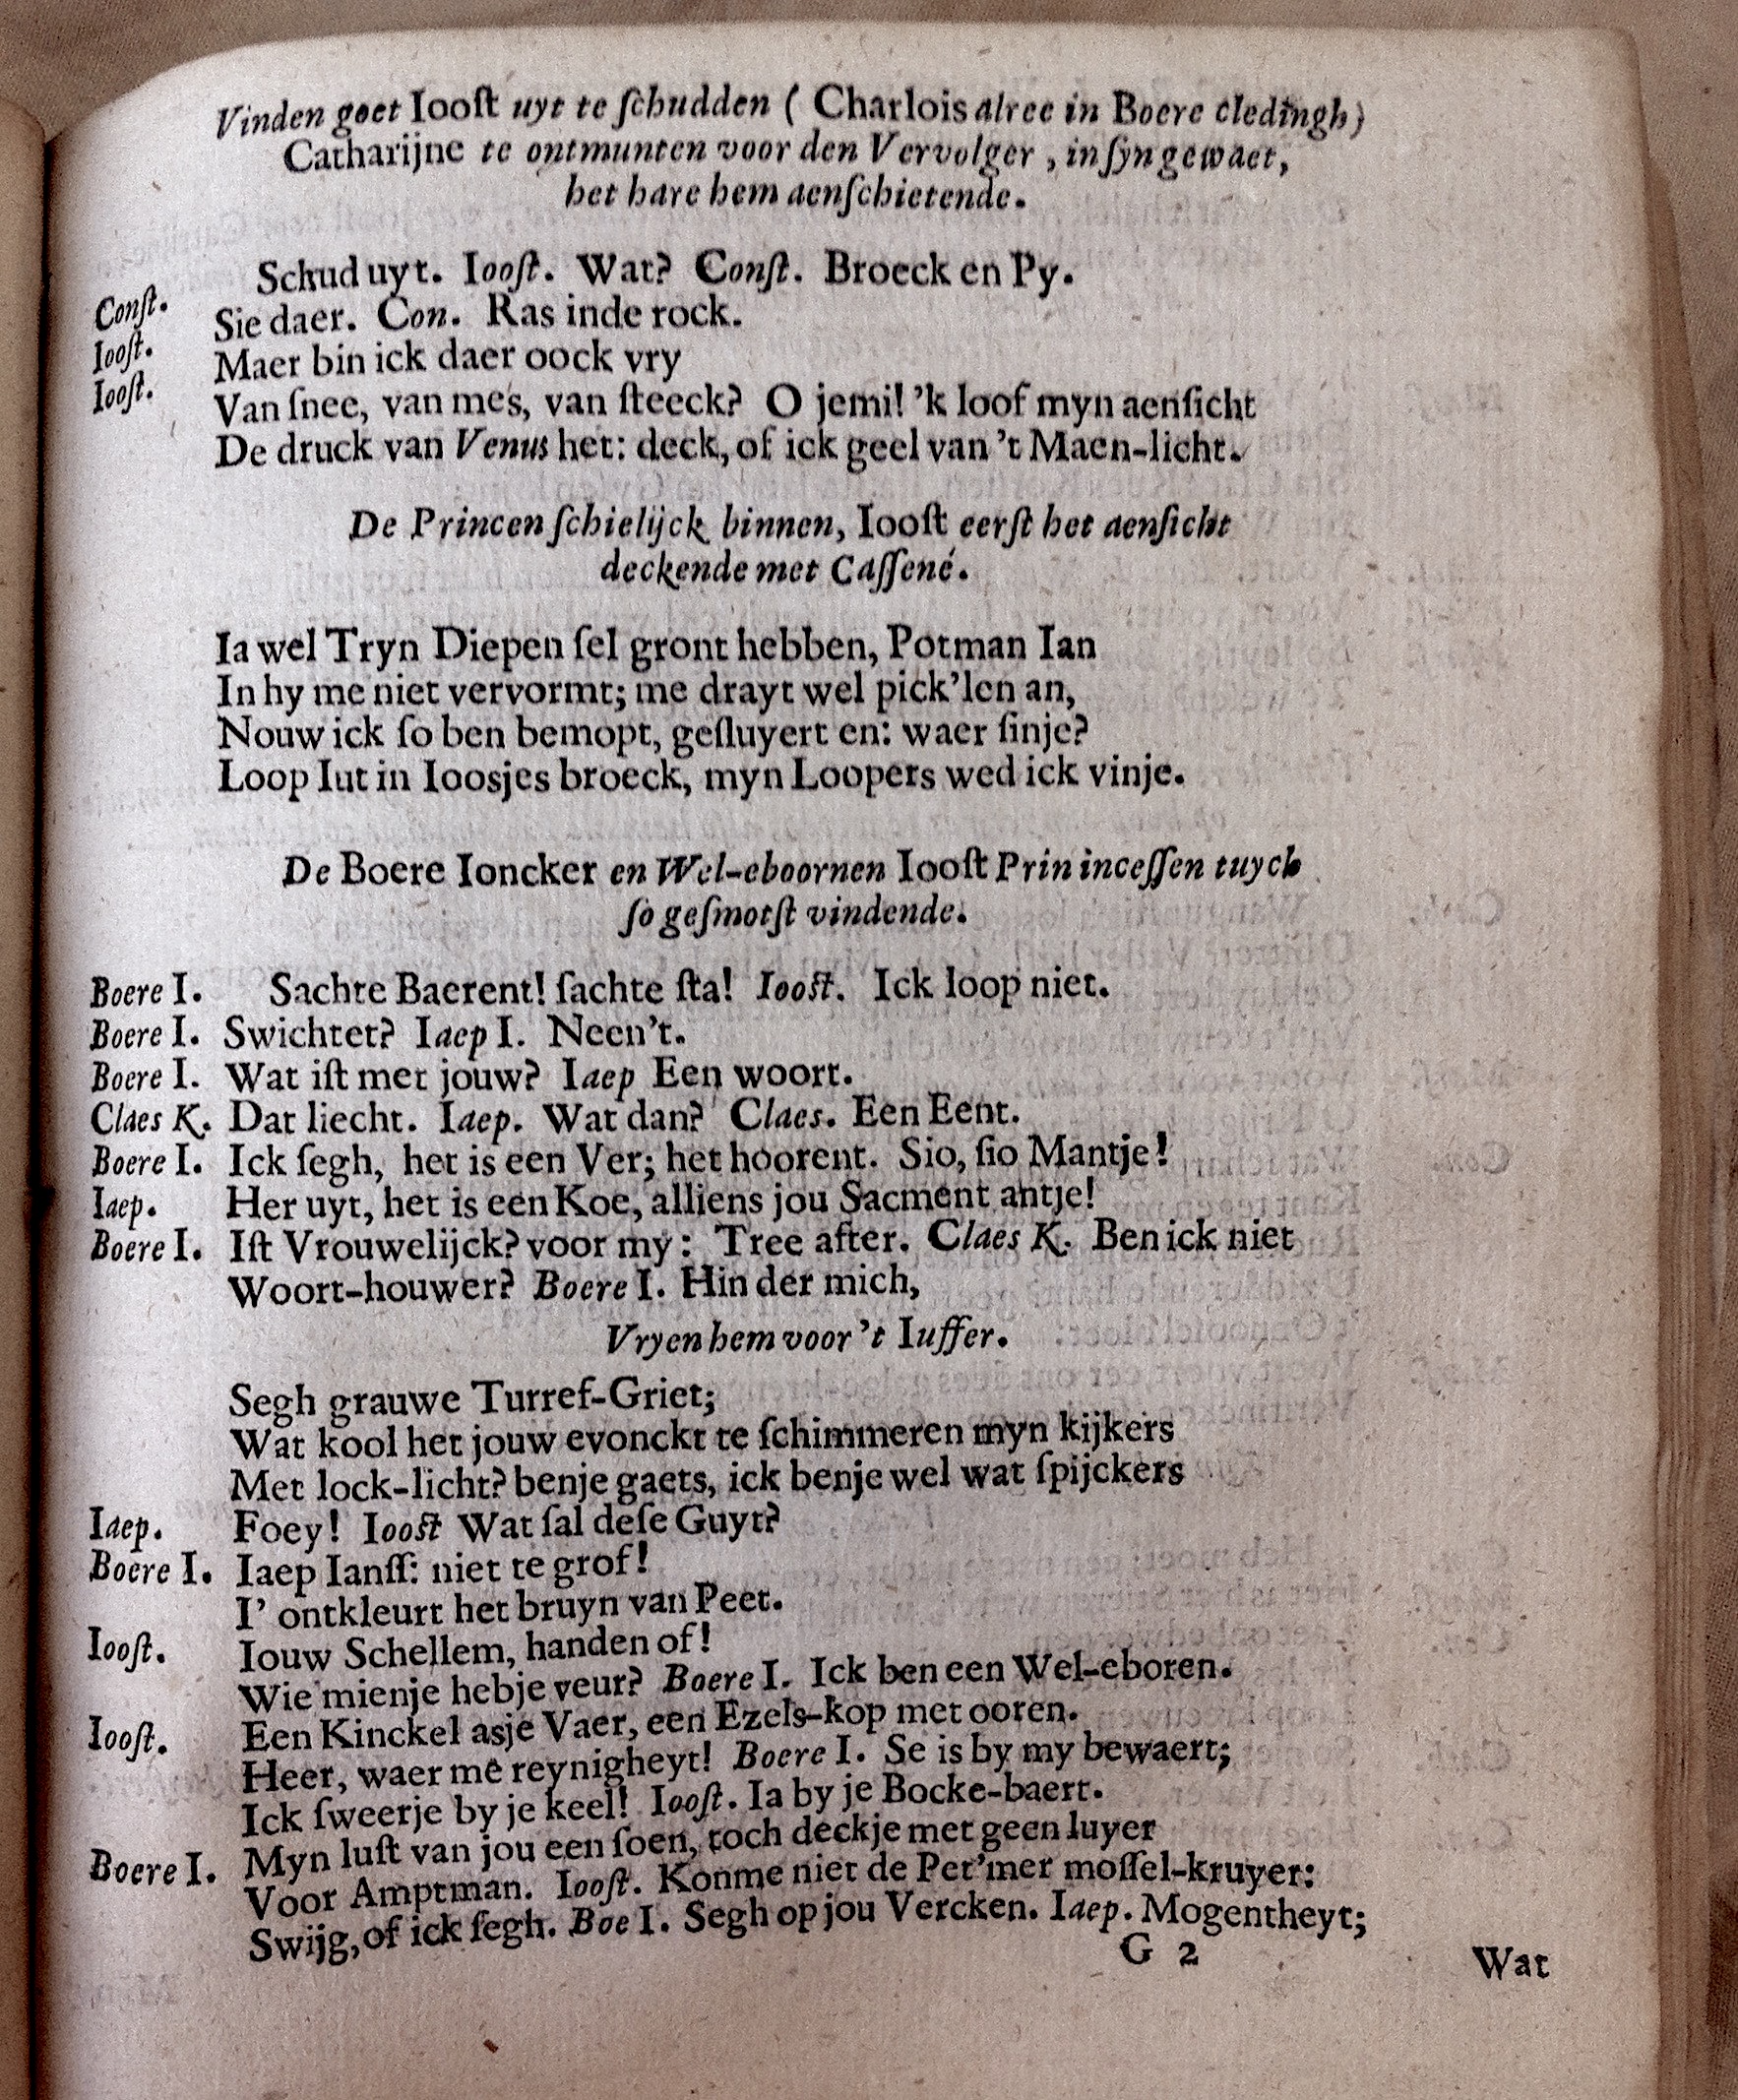 Vinden goet Iooſt uyt te ſchudden ( Charlois alree in Boere cledingh)
Catharijne te ontmunten voor den Vervolger , in ſyn gewaet,
het hare hem aenſchietende.
Conſt. Schud uyt. Iooſt. Wat? Conſt. Broeck en Py.
Iooſt. Sie daer. Con. Ras inde rock.
Iooſt. Maer bin ick daer oock vry
Van ſnee, van mes, van ſteeck? O jemi! 'k loof myn aenſicht
De druck van Venus het: deck, of ick geel van 't Maen-licht.
De Princen ſchielijck binnen, Iooſt eerſt het aenſicht
deckende met Caſſené.
Ia wel Tryn Diepen ſel gront hebben, Potman Ian
In hy me niet vervormt; me drayt wel pick'len an,
Nouw ick ſo ben bemopt, geſluyert en: waer ſinje?
Loop Iut in Ioosjes broeck, myn Loopers wed ick vinje.
De Boere Ioncker en Wel-eboornen Iooſt Prin inceſſen tuych
ſo geſmotſt vindende.
Boere I. Sachte Baerent! ſachte ſta! Iooſt. Ick loop niet.
Boere I. Swichtet? Iaep I. Neen't.
Boere I. Wat iſt met jouw? Iaep Een woort.
Claes K. Dat liecht. Iaep. Wat dan? Claes. Een Eent.
Boere I. Ick ſegh, het is een Ver; het hoorent. Sio, ſio Mantje!
Iaep. Her uyt, het is een Koe, alliens jou Sacment antje!
Boere I. Iſt Vrouwelijck? voor my: Tree after. Claes K. Ben ick niet
Woort-houwer? Boere I. Hin der mich,
Vryen hem voor 't Iuffer.
Segh grauwe Turref-Griet;
Wat kool het jouw evonckt te ſchimmeren myn kijkers
Met lock-licht? benje gaets, ick benje wel wat ſpijckers
Iaep. Foey! Iooſt Wat ſal deſe Guyt?
Boere I. Iaep Ianſſ: niet te grof!
I' ontkleurt het bruyn van Peet.
Iooſt. Iouw Schellem, handen of!
Wie mienje hebje veur? Boere I. Ick ben een Wel-eboren.
Iooſt. Een Kinckel asje Vaer, een Ezels-kop met ooren.
Heer, waer me reynigheyt! Boere I. Se is by my bewaert;
Ick ſweerje by je keel! Iooſt. Ia by je Bocke-baert.
Boere I. Myn luſt van jou een ſoen, toch deckje met geen luyer
Voor Amptman. Iooſt. Konme niet de Pet'mer moſſel-kruyer:
Swijg, of ick ſegh. Boe I. Segh op jou Vercken. Iaep. Mogentheyt;
G 2 Wat